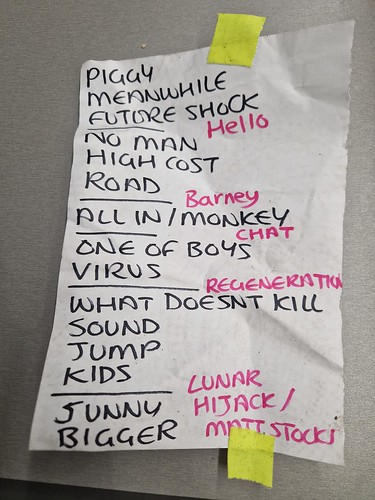 PIGGY
MEANWHILE
FUTURE SHOCK
Hello
NO MAN
HIGH COST
ROAD
Barney
ALL IN / MONKEY
CHAT
ONE OF BOYS
VIRUS
REGENERATION
WHAT DOESNT KILL
SOUND
JUMP
KIDS
LUNAR
HIJACK /
MATT STOCKS
JUNNY
BIGGER